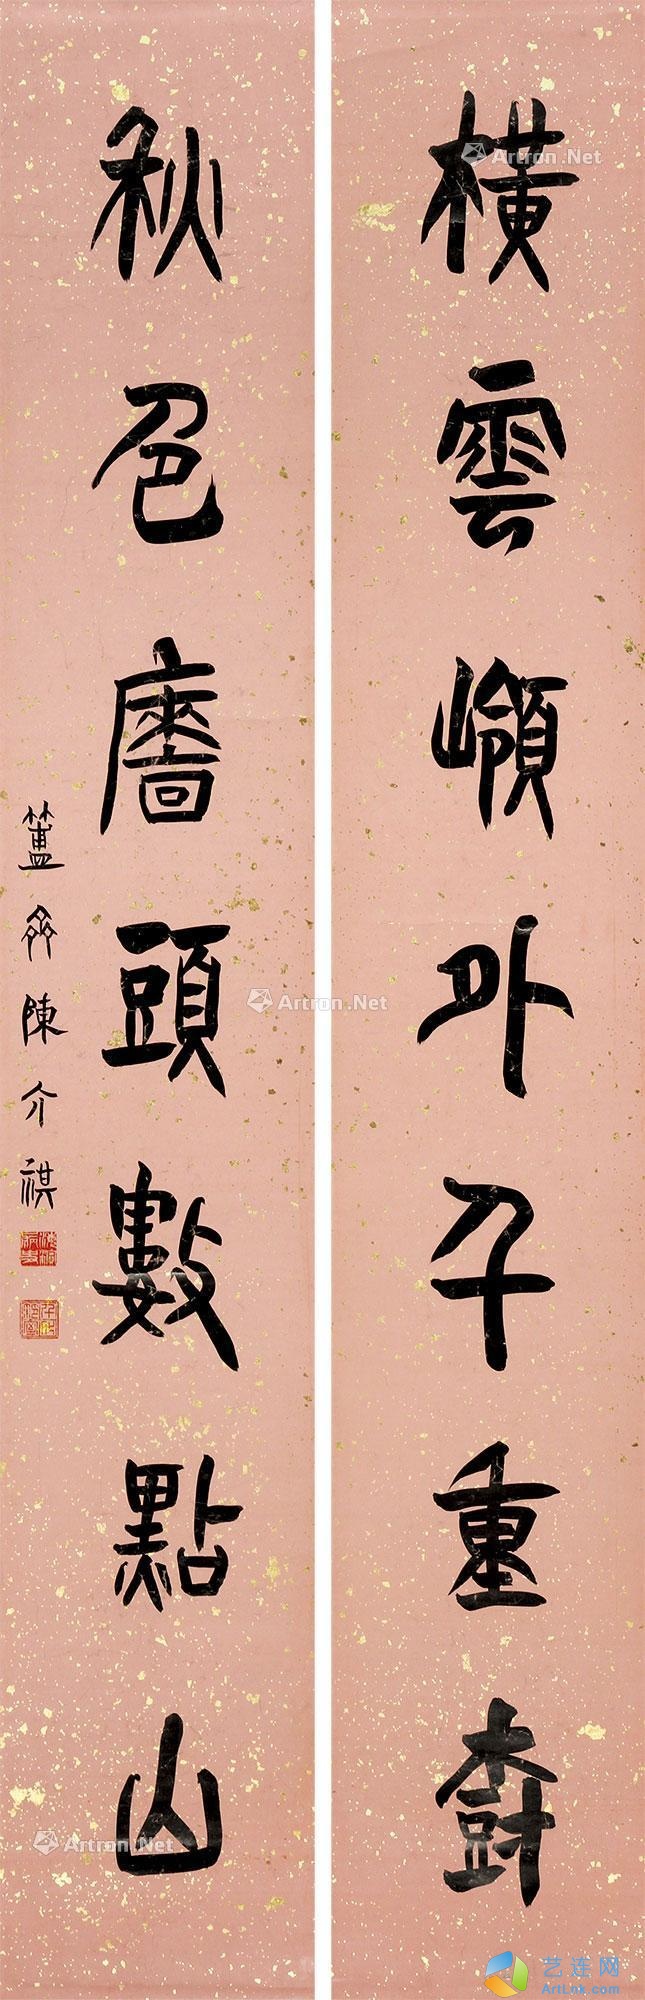 橫雲嶺外千重尌
秋色牆頭數點山
簠齋陳介祺
Artron.Net
Artron.Net
Artron.Net
Artron.Net
艺连网
ArtLnk.com